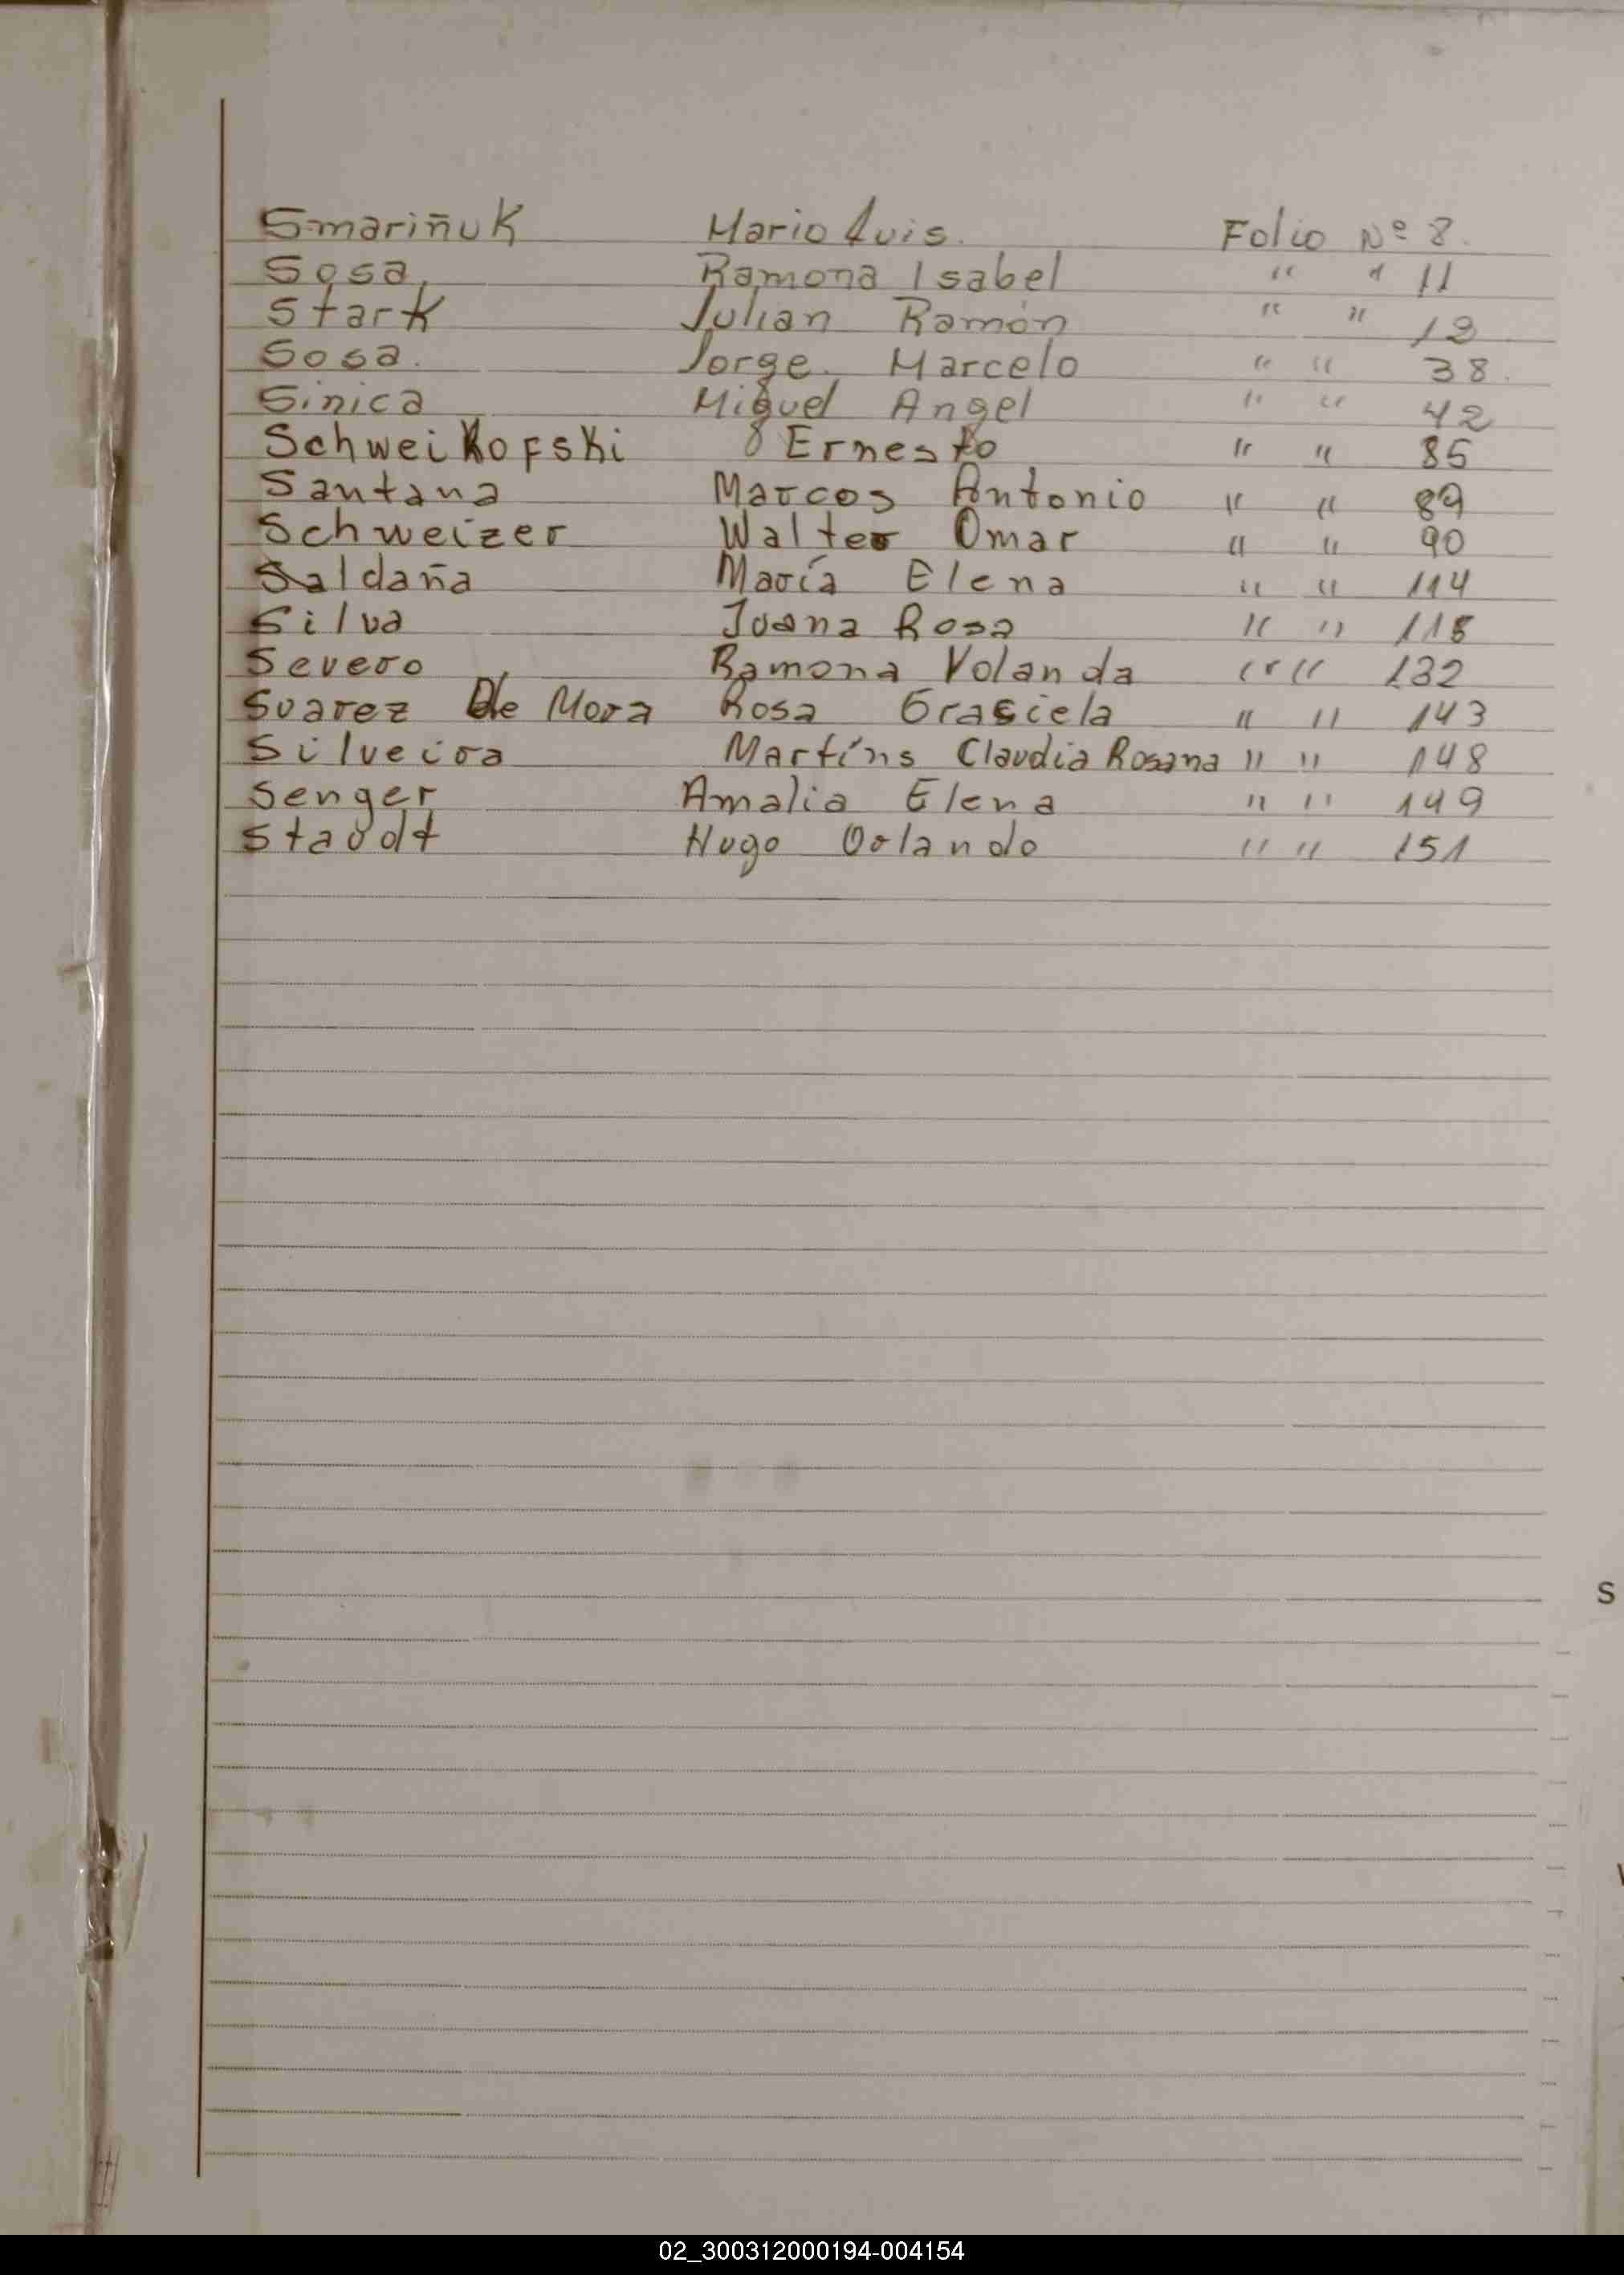 Smariñuk Mario Luis. Folio Nº 8.
Sosa, Ramona Isabel " " 11
Stark Julian Ramón " " 12
Sosa. Jorge. Marcelo " " 38.
Sinica Miguel Angel " " 42
Schweikofski Ernesto " " 85
Santana Marcos Antonio " " 89
Schweizer Walter Omar " " 90
Saldaña María Elena " " 114
Silva Juana Rosa " " 118
Severo Ramona Yolanda " " 132
Suarez De Mora Rosa Grasiela " " 143
Silveira Martíns Claudia Rosana " " 148
Senger Amalia Elena " " 149
Staudt Hugo Orlando " " 151
S
02_300312000194-004154